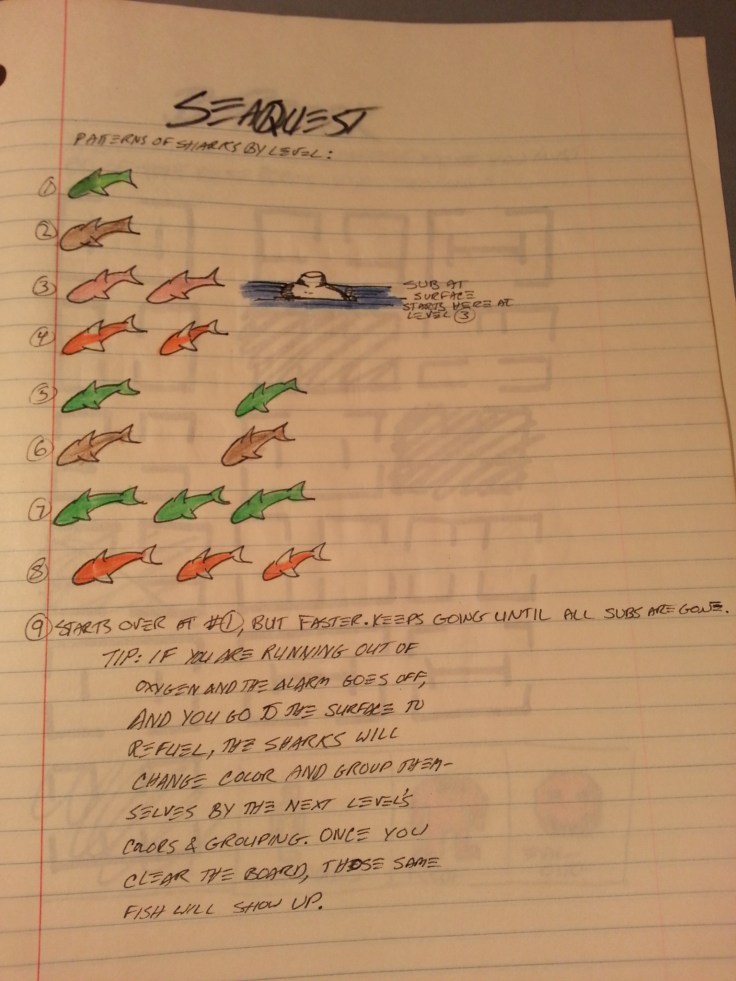 SEAQUEST
PATTERNS OF SHARKS BY LEVEL:
①
②
③ SUB AT
SURFACE
STARTS HERE AT
LEVEL ③
④
⑤
⑥
⑦
⑧
⑨ STARTS OVER AT #①, BUT FASTER. KEEPS GOING UNTIL ALL SUBS ARE GONE.
TIP: IF YOU ARE RUNNING OUT OF
OXYGEN AND THE ALARM GOES OFF,
AND YOU GO TO THE SURFACE TO
REFUEL, THE SHARKS WILL
CHANGE COLOR AND GROUP THEM-
SELVES BY THE NEXT LEVEL'S
COLORS & GROUPING. ONCE YOU
CLEAR THE BOARD, THOSE SAME
FISH WILL SHOW UP.